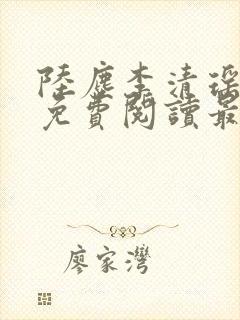 陸塵李清瑤
免費閱讀最
廖家灣